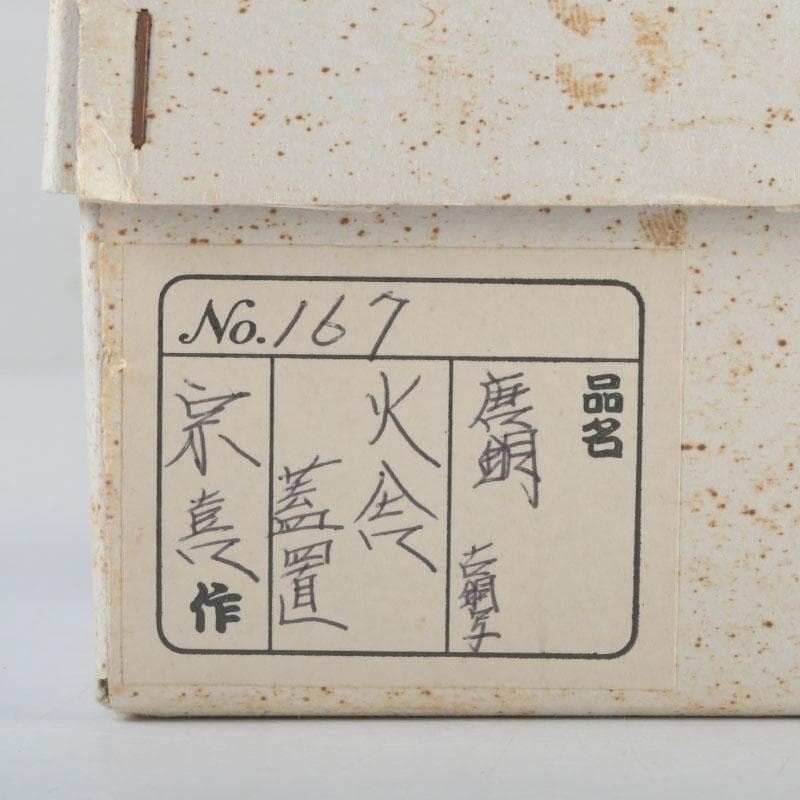 No.167
品名
唐銅 古銅写
火舎
蓋置
宗喜作